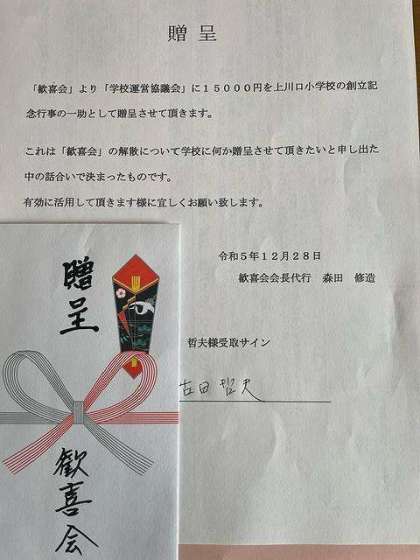 贈 呈
「歓喜会」より「学校運営協議会」に15000円を上川口小学校の創立記
念行事の一助として贈呈させて頂きます。
これは「歓喜会」の解散について学校に何か贈呈させて頂きたいと申し出た
中の話合いで決まったものです。
有効に活用して頂きます様に宜しくお願い致します。
令和5年12月28日
歓喜会会長代行 森田 修造
哲夫様受取サイン
古田哲夫
贈呈
歓喜会